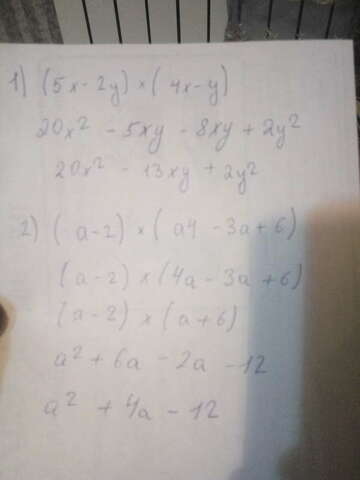 1) (5x-2y) × (4x-y)
20x² - 5xy - 8xy + 2y²
20x² - 13xy + 2y²
2) (a-2) × (a4 - 3a + 6)
(a-2) × (4a - 3a + 6)
(a-2) × (a+6)
a² + 6a - 2a - 12
a² + 4a - 12